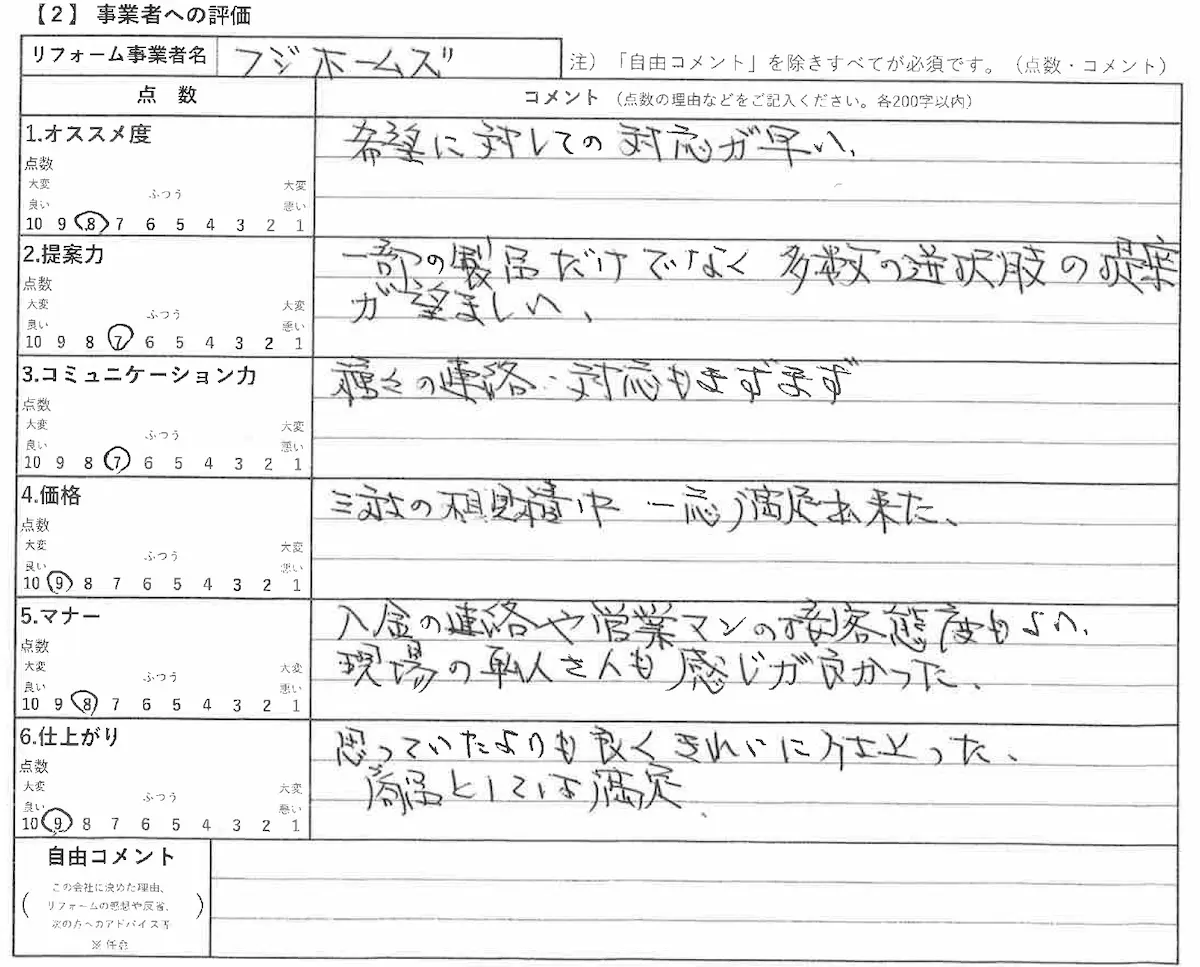 【2】 事業者への評価
リフォーム事業者名 フジホームズ
注）「自由コメント」を除きすべてが必須です。（点数・コメント）
点 数 コメント （点数の理由などをご記入ください。各200字以内）
1.オススメ度
点数
大変良い ふつう 大変悪い
10 9 8 7 6 5 4 3 2 1
希望に対しての対応が早い、
2.提案力
点数
大変良い ふつう 大変悪い
10 9 8 7 6 5 4 3 2 1
一部の製品だけでなく 多数の選択肢の提案
が望ましい、
3.コミュニケーション力
点数
大変良い ふつう 大変悪い
10 9 8 7 6 5 4 3 2 1
種々の連絡・対応もまずまず
4.価格
点数
大変良い ふつう 大変悪い
10 9 8 7 6 5 4 3 2 1
三社の相見積中 一応満足出来た、
5.マナー
点数
大変良い ふつう 大変悪い
10 9 8 7 6 5 4 3 2 1
入金の連絡や営業マンの接客態度もよい、
現場の職人さんも感じが良かった、
6.仕上がり
点数
大変良い ふつう 大変悪い
10 9 8 7 6 5 4 3 2 1
思っていたよりも良くきれいに仕上った、
商品としては満足、
自由コメント
（この会社に決めた理由、
リフォームの感想や反省、
次の方へのアドバイス等
※任意）